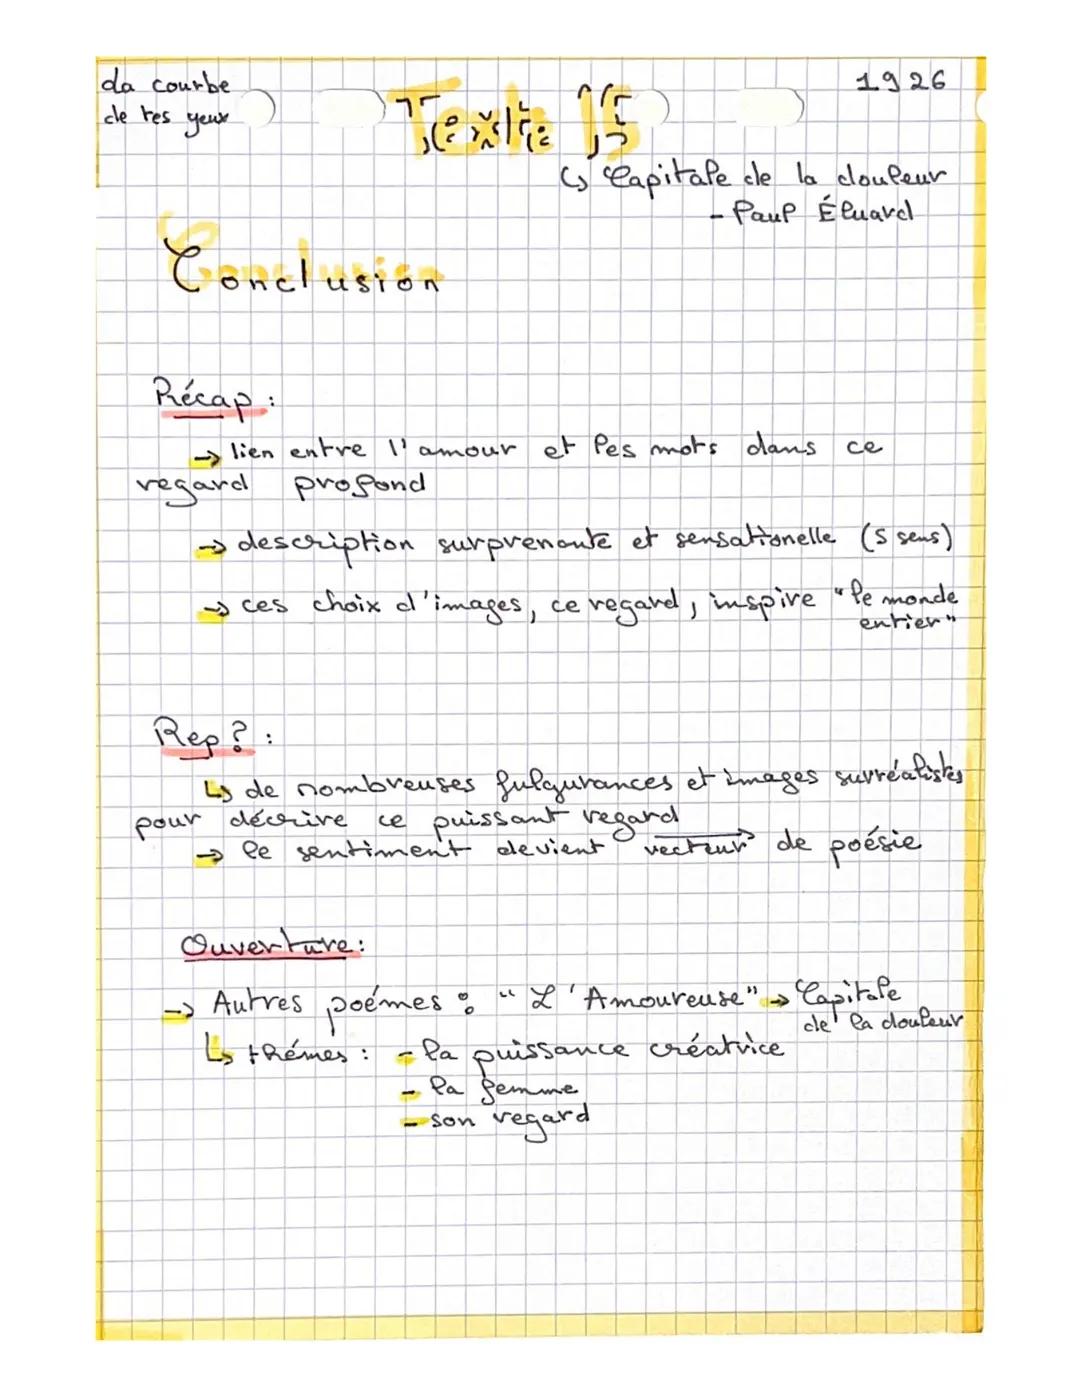 La courbe
de tes yeux
Texte 15
1926
↳ Capitale de la douleur
- Paul Éluard
Conclusion
Récap :
→ lien entre l'amour et les mots dans ce
regard profond
→ description surprenante et sensationelle (5 sens)
→ ces choix d'images, ce regard, inspire "le monde
entier"
Rep? :
↳ de nombreuses fulgurances et images surréalistes
pour décrire ce puissant regard
→ le sentiment devient vecteur de poésie
Ouverture :
→ Autres poémes : "L'Amoureuse" → Capitale
de la douleur
↳ thémes : - la puissance créatrice
- la femme
- son regard